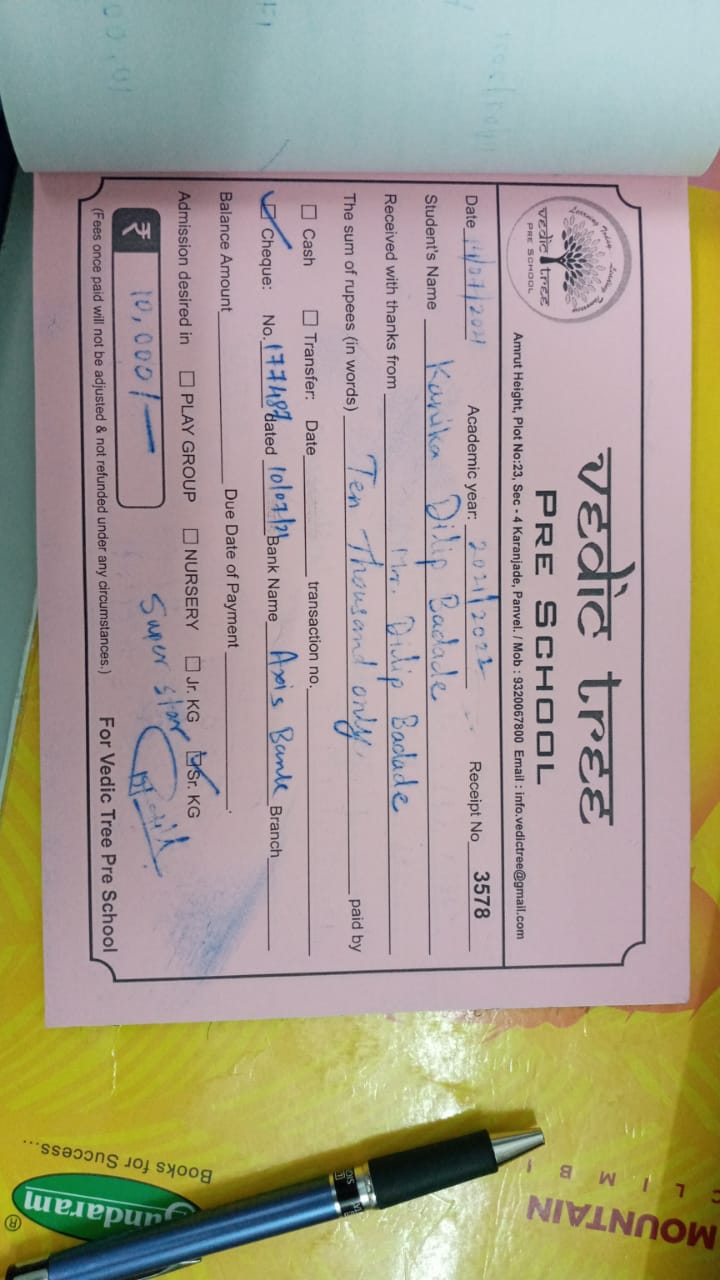 vedic tree
PRE SCHOOL
vedic tree
PRE SCHOOL
Amrut Height, Plot No:23, Sec - 4 Karanjade, Panvel. / Mob : 9320067800 Email : info.vedictree@gmail.com
Date 14/07/2021 Academic year: 2021/2022 Receipt No 3578
Student's Name Kanika Dilip Badade
Received with thanks from Mr. Dilip Badade
The sum of rupees (in words) Ten Thousand only. paid by
Cash Transfer: Date transaction no.
Cheque: No. 177487 dated 10/07/21 Bank Name Axis Bank Branch
Balance Amount Due Date of Payment
Admission desired in PLAY GROUP NURSERY Jr. KG Sr. KG
₹ 10,000/- Super star
(Fees once paid will not be adjusted & not refunded under any circumstances.) For Vedic Tree Pre School
MOUNTAIN
CLIMBI
Books for Success...
Sundaram®